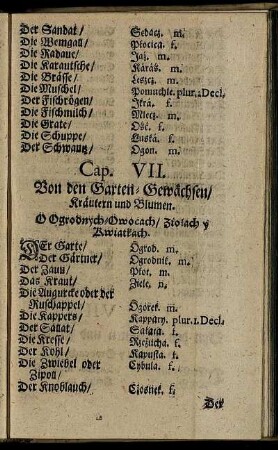 Der Sandat/ Sędacz. m.
Die Wemgall/ Płocica. f.
Die Radaue/ Jaź. m.
Die Karautsche/ Karaś. m.
Die Bräsſe/ Leszcz. m.
Die Muſchel/ plur. 2 Decl.
Der Fiſchrögen/ Jkrá. f.
Die Fiſchmilch/ Mlecz. m.
Die Grate/ Ość. f.
Die Schuppe/ Łuská. f.
Der Schwantz/ Ogon. m.
Cap. VII.
Von den Garten-Gewächſen/
Kräutern und Blumen.
O Ogrodnych/Owocach/ Ziołach y
Kwiatkach.
DEr Garte/ Ogrod. m.
Der Gärtner/ Ogrodnik. m.
Der Zaun/ Płot. m.
Das Kraut/ Ziele. n.
Die Augurcke oder der
Ruſchappel/ Ogorek. m.
Die Kappers/ Kappary. plur. 1. Decl.
Der Salat/ Sałata. f.
Die Kreſſe/ Rzeżucha. f.
Der Kohl/ Kapusta. f.
Die Zwiebel oder
Zipoll/ Cybula. f.
Der Knoblauch/ Czosnek. f.
Der